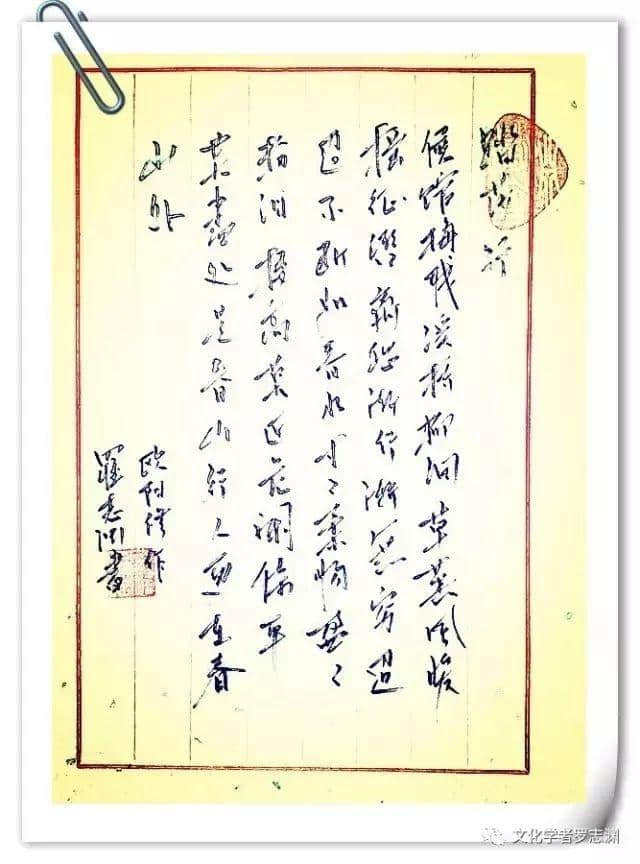 踏莎行
候馆梅残溪桥柳细草薰风暖
摇征辔离愁渐远渐无穷迢
迢不断如春水寸〻柔肠盈〻
粉泪楼高莫近危阑倚平
芜尽处是春山行人更在春
山外
欧阳修作
羅志渊書
文化学者罗志渊